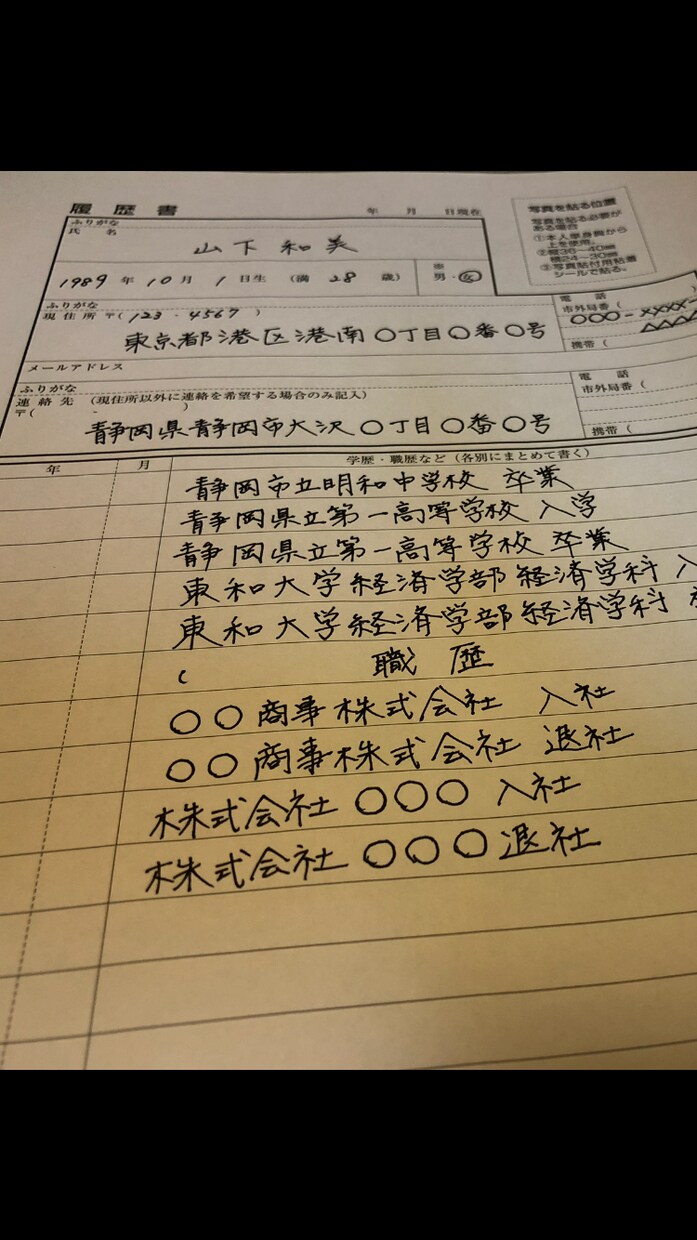 履歴書 年 月 日現在
ふりがな
氏 名 山下和美
1989 年 10 月 1 日生 (満 28 歳) 男・女
写真を貼る位置
写真を貼る必要が
ある場合
①本人単身胸から
上を使用。
②縦36~40mm
横24~30mm
③写真貼付用粘着
シールで貼る。
ふりがな
現住所 〒(123 - 4567 )
東京都港区港南〇丁目〇番〇号
電 話
市外局番 (
〇〇〇-xxxx-
△△△△
携帯 (
メールアドレス
ふりがな
連絡先 (現住所以外に連絡を希望する場合のみ記入)
〒( - )
静岡県静岡市大沢〇丁目〇番〇号
電 話
市外局番 (
携帯 (
年 月 学歴・職歴など (各別にまとめて書く)
静岡市立明和中学校 卒業
静岡県立第一高等学校 入学
静岡県立第一高等学校 卒業
東和大学経済学部経済学科 入
東和大学経済学部経済学科
職 歴
〇〇商事株式会社 入社
〇〇商事株式会社 退社
株式会社〇〇〇 入社
株式会社〇〇〇退社